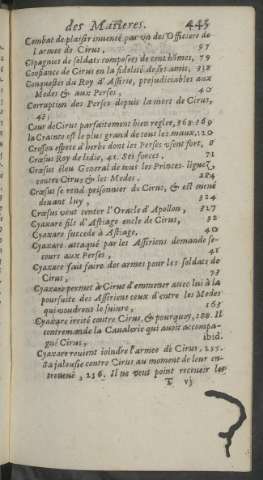 des Matieres. 445
Combat de plaisir inuenté par vn des Officiers de
l'armée de Cirus, 57
Cōpagnies de soldats composées de cent hōmes, 79
Cōfiance de Cirus en la fidelité de ses amis, 318
Conquestes du Roy d'Assirie, prejudiciables aux
Medes & aux Perses, 40
Corruption des Perses depuis la mort de Cirus,
42,
Cour de Cirus parfaitement bien reglée, 368.369
la Crainte est le plus grand de tous les maux, 120
Cresson espece d'herbe dont les Perses vsent fort, 8
Crœsus Roy de Lidie, 41. Ses forces. 71
Crœsus éleu General de tous les Princes liguez
contre Cirus & les Medes. 284
Crœsus se rend prisonnier de Cirus, & est mené
deuant luy, 324
Crœsus veut tenter l'Oracle d'Apollon, 327
Cyaxare fils d'Astiage oncle de Cirus, 32
Cyaxare succede à Astiage, 40
Cyaxare attaqué par les Assiriens demande se-
cours aux Perses, 41
Cyaxare fait faire des armes pour les soldats de
Cirus, 73
Cyaxare permet à Cirus d'emmener auec luì à la
poursuite des Assiriens ceux d'entre les Medes
qui voudront le suiure, 163
Cyaxare irrité contre Cirus, & pourquoy, 188. Il
contremande la Caualerie qui auoit accompa-
gné Cirus, ibid.
Cyaxare reuient ioindre l'armée de Cirus, 235.
Sa jalousie contre Cirus au moment de leur en-
treueuë, 236. Il ne veut point receuoir les
T vj